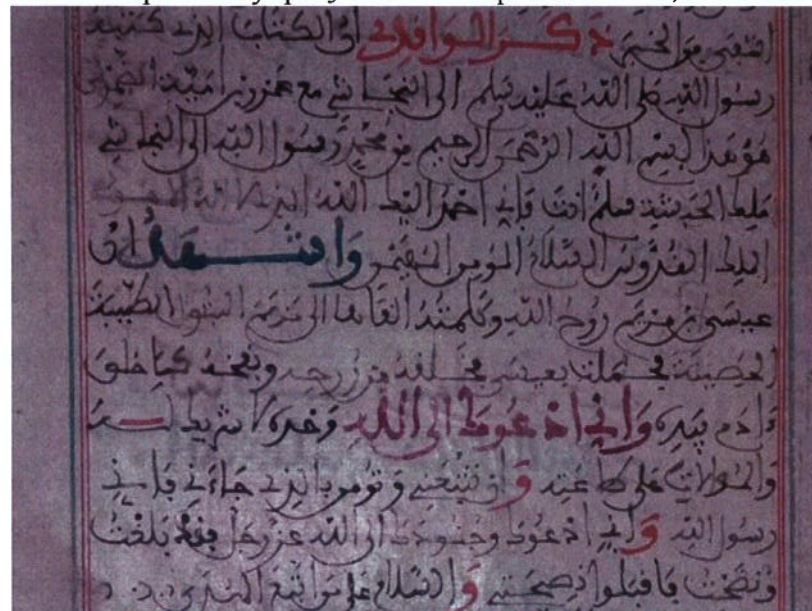 انتهى من الخبر ذكر الواقدي ان الكتاب الذي كتبه
رسول الله صلى الله عليه وسلم الى النجاشي مع عمرو بن امية الضمري
هو هذا بسم الله الرحمن الرحيم من محمد رسول الله الى النجاشي
ملك الحبشة سلم انت فاني احمد اليك الله الذي لا اله الا هو
الملك القدوس السلام المومن المهيمن واشهد ان
عيسى بن مريم روح الله وكلمته القاها الى مريم البتول الطيبة
الحصينة فحملت بعيسى فخلقه من روحه ونفخه كما خلق
ءادم بيده واني ادعوك الى الله وحده لا شريك له
والموالات على طاعته وان تتبعني وتومن بالذي جاءني فاني
رسول الله واني ادعوك وجنودك الى الله عز وجل فقد بلغت
ونصحت فاقبلوا نصيحتي والسلام على من اتبع الهدى